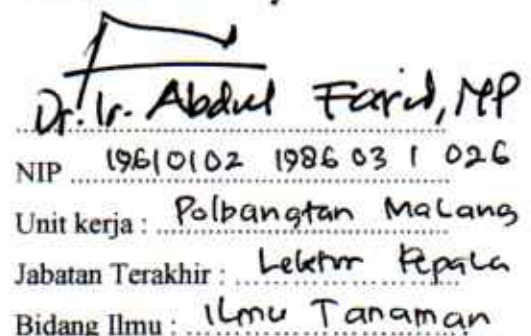 Dr. Ir. Abdul Farid, MP
NIP 19610102 1986 03 1 026
Unit kerja : Polbangtan Malang
Jabatan Terakhir : Lektor Kepala
Bidang Ilmu : Ilmu Tanaman